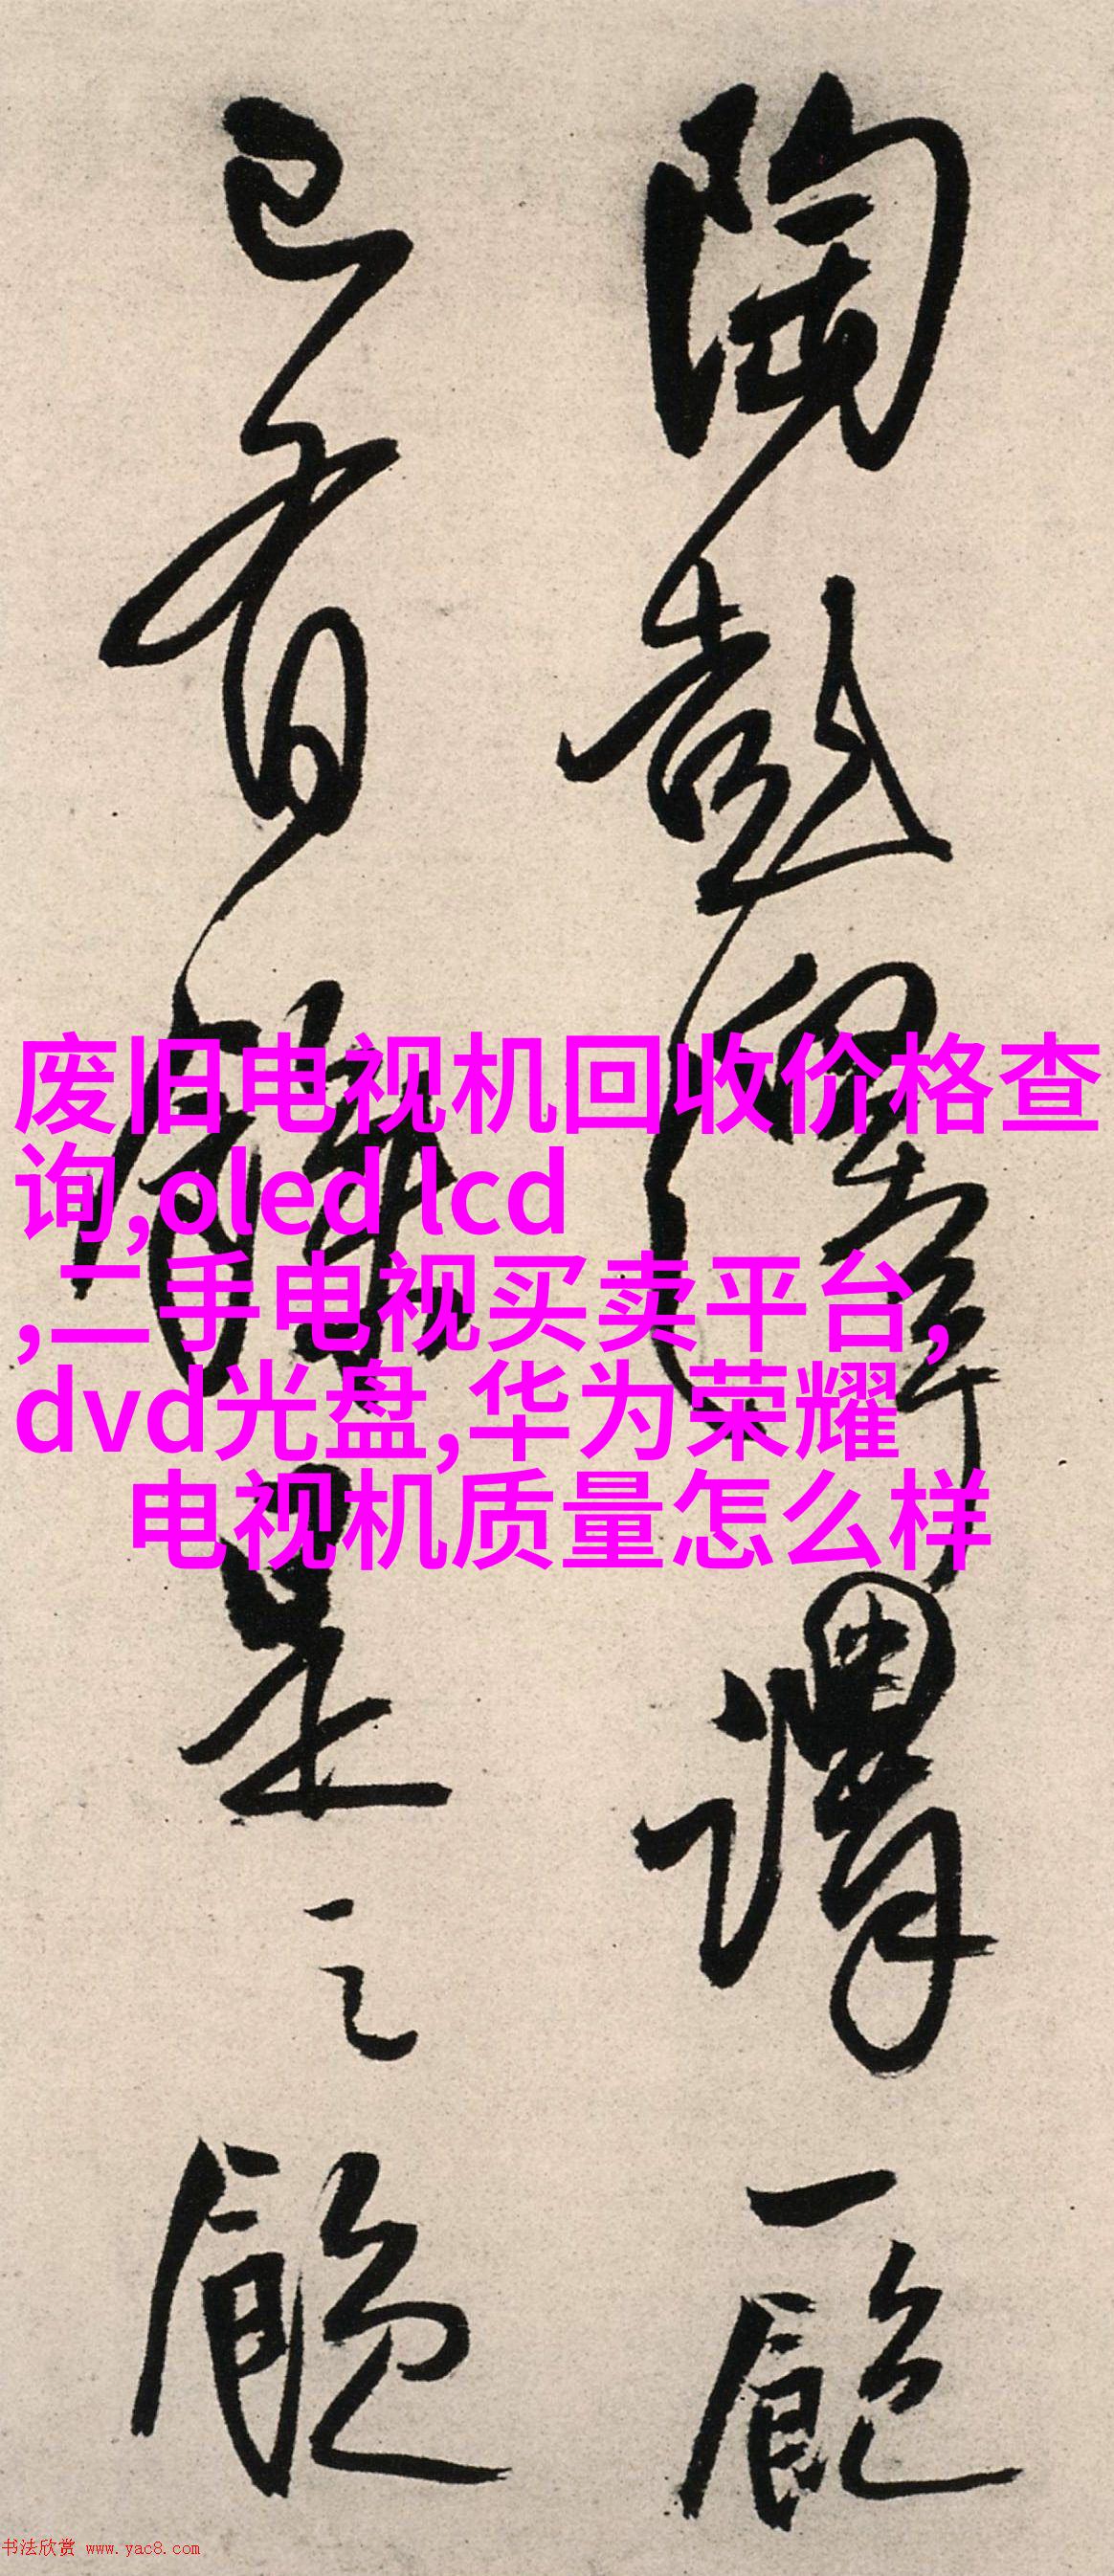 陶彭澤謂一飽
已有餘是之飲
废旧电视机回收价格查
询,oled lcd
,二手电视买卖平台,
dvd光盘,华为荣耀
电视机质量怎么样
书法欣赏 www.yac8.com